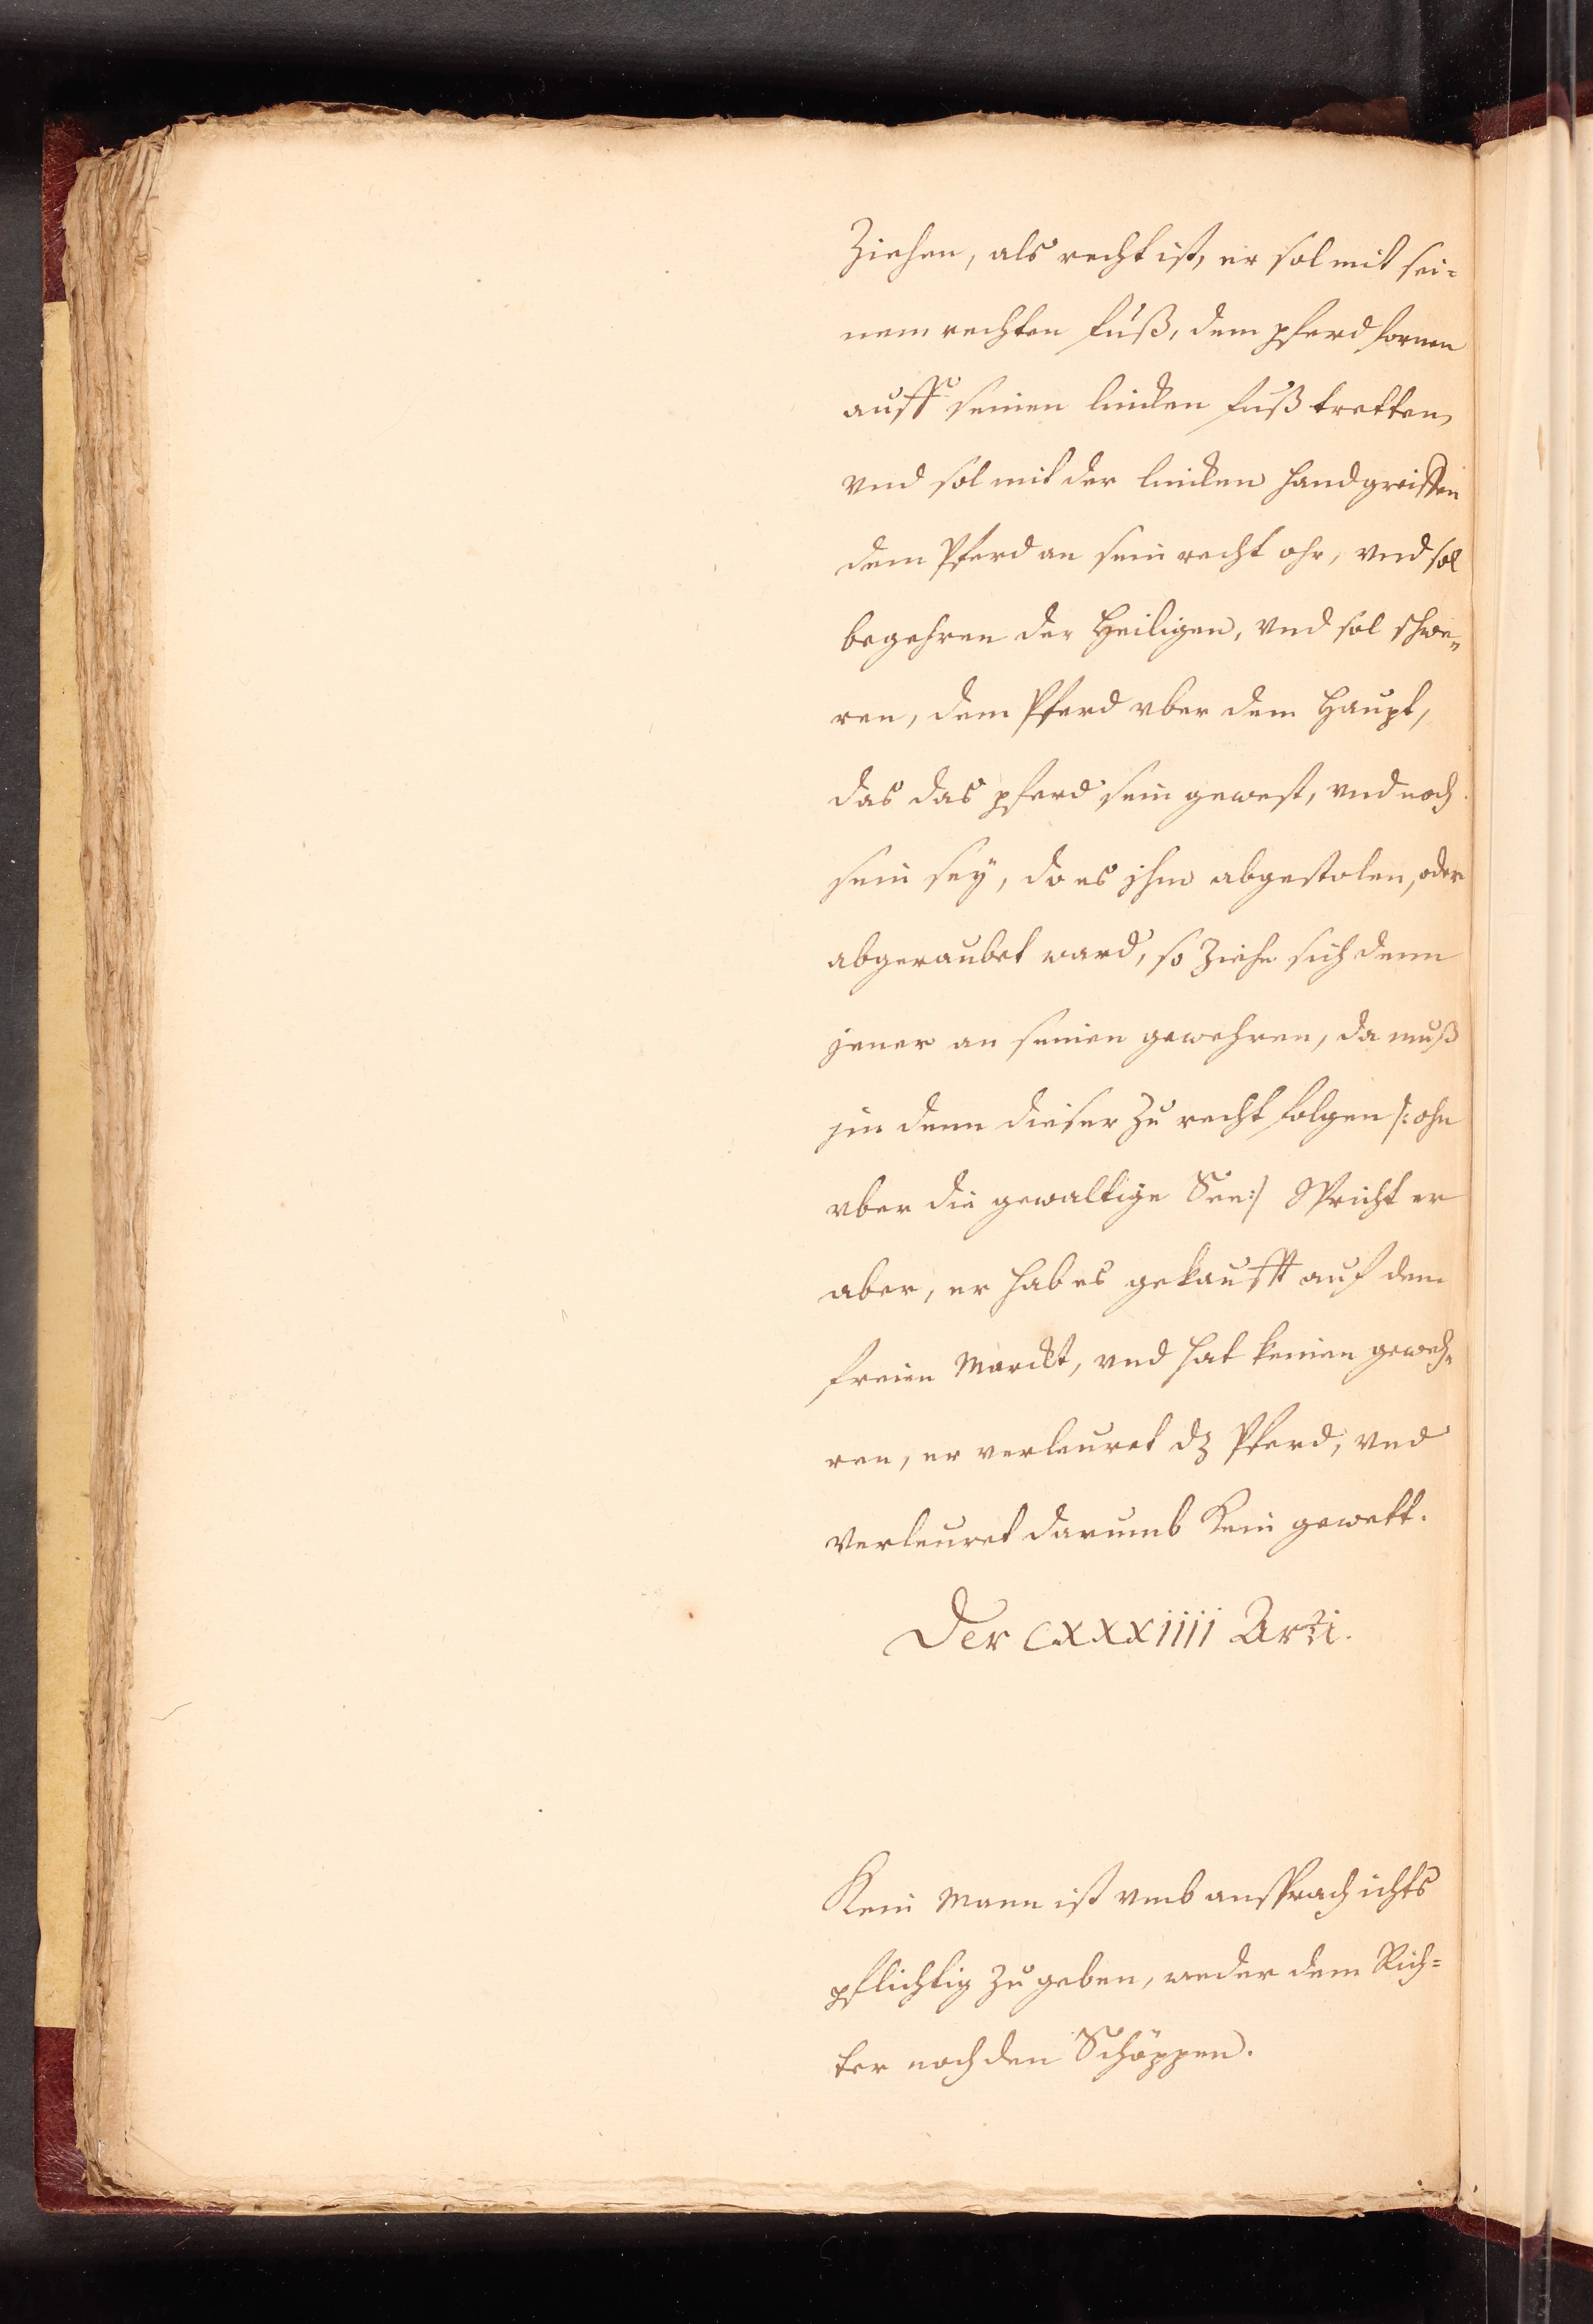 Ziehen, als recht ist, er sol mit sei=
nem rechten fuß, dem pferd fornen
auff seinen lincken fuß tretten,
vnd sol mit der lincken hand greiffen
dem Pferd an sein recht ohr, vnd sol
begehren der Heiligen, vnd sol schwe„
ren, dem Pferd vber dem Haupt,
das das pferd sein gewest, vnd noch
sein sey, do es jhm abgestolen, oder
abgeraubet ward, so Ziehe sich denn
jener an seinen gewehren, da muß
jm denn dieser Zu recht folgen /: ohn
vber die gewaltige See :/ Spricht er
aber, er hab es gekaufft auf dem
freien Marckt, vnd hat keinen geweh„
ren, er verleuret dz Pferd, vnd
verleuret darumb Kein gewett.
Der CXXXiiii Arti.
Kein Mann ist vmb ansprach ichts
pflichtig Zu geben, weder dem Rich=
ter noch den Schöppen.